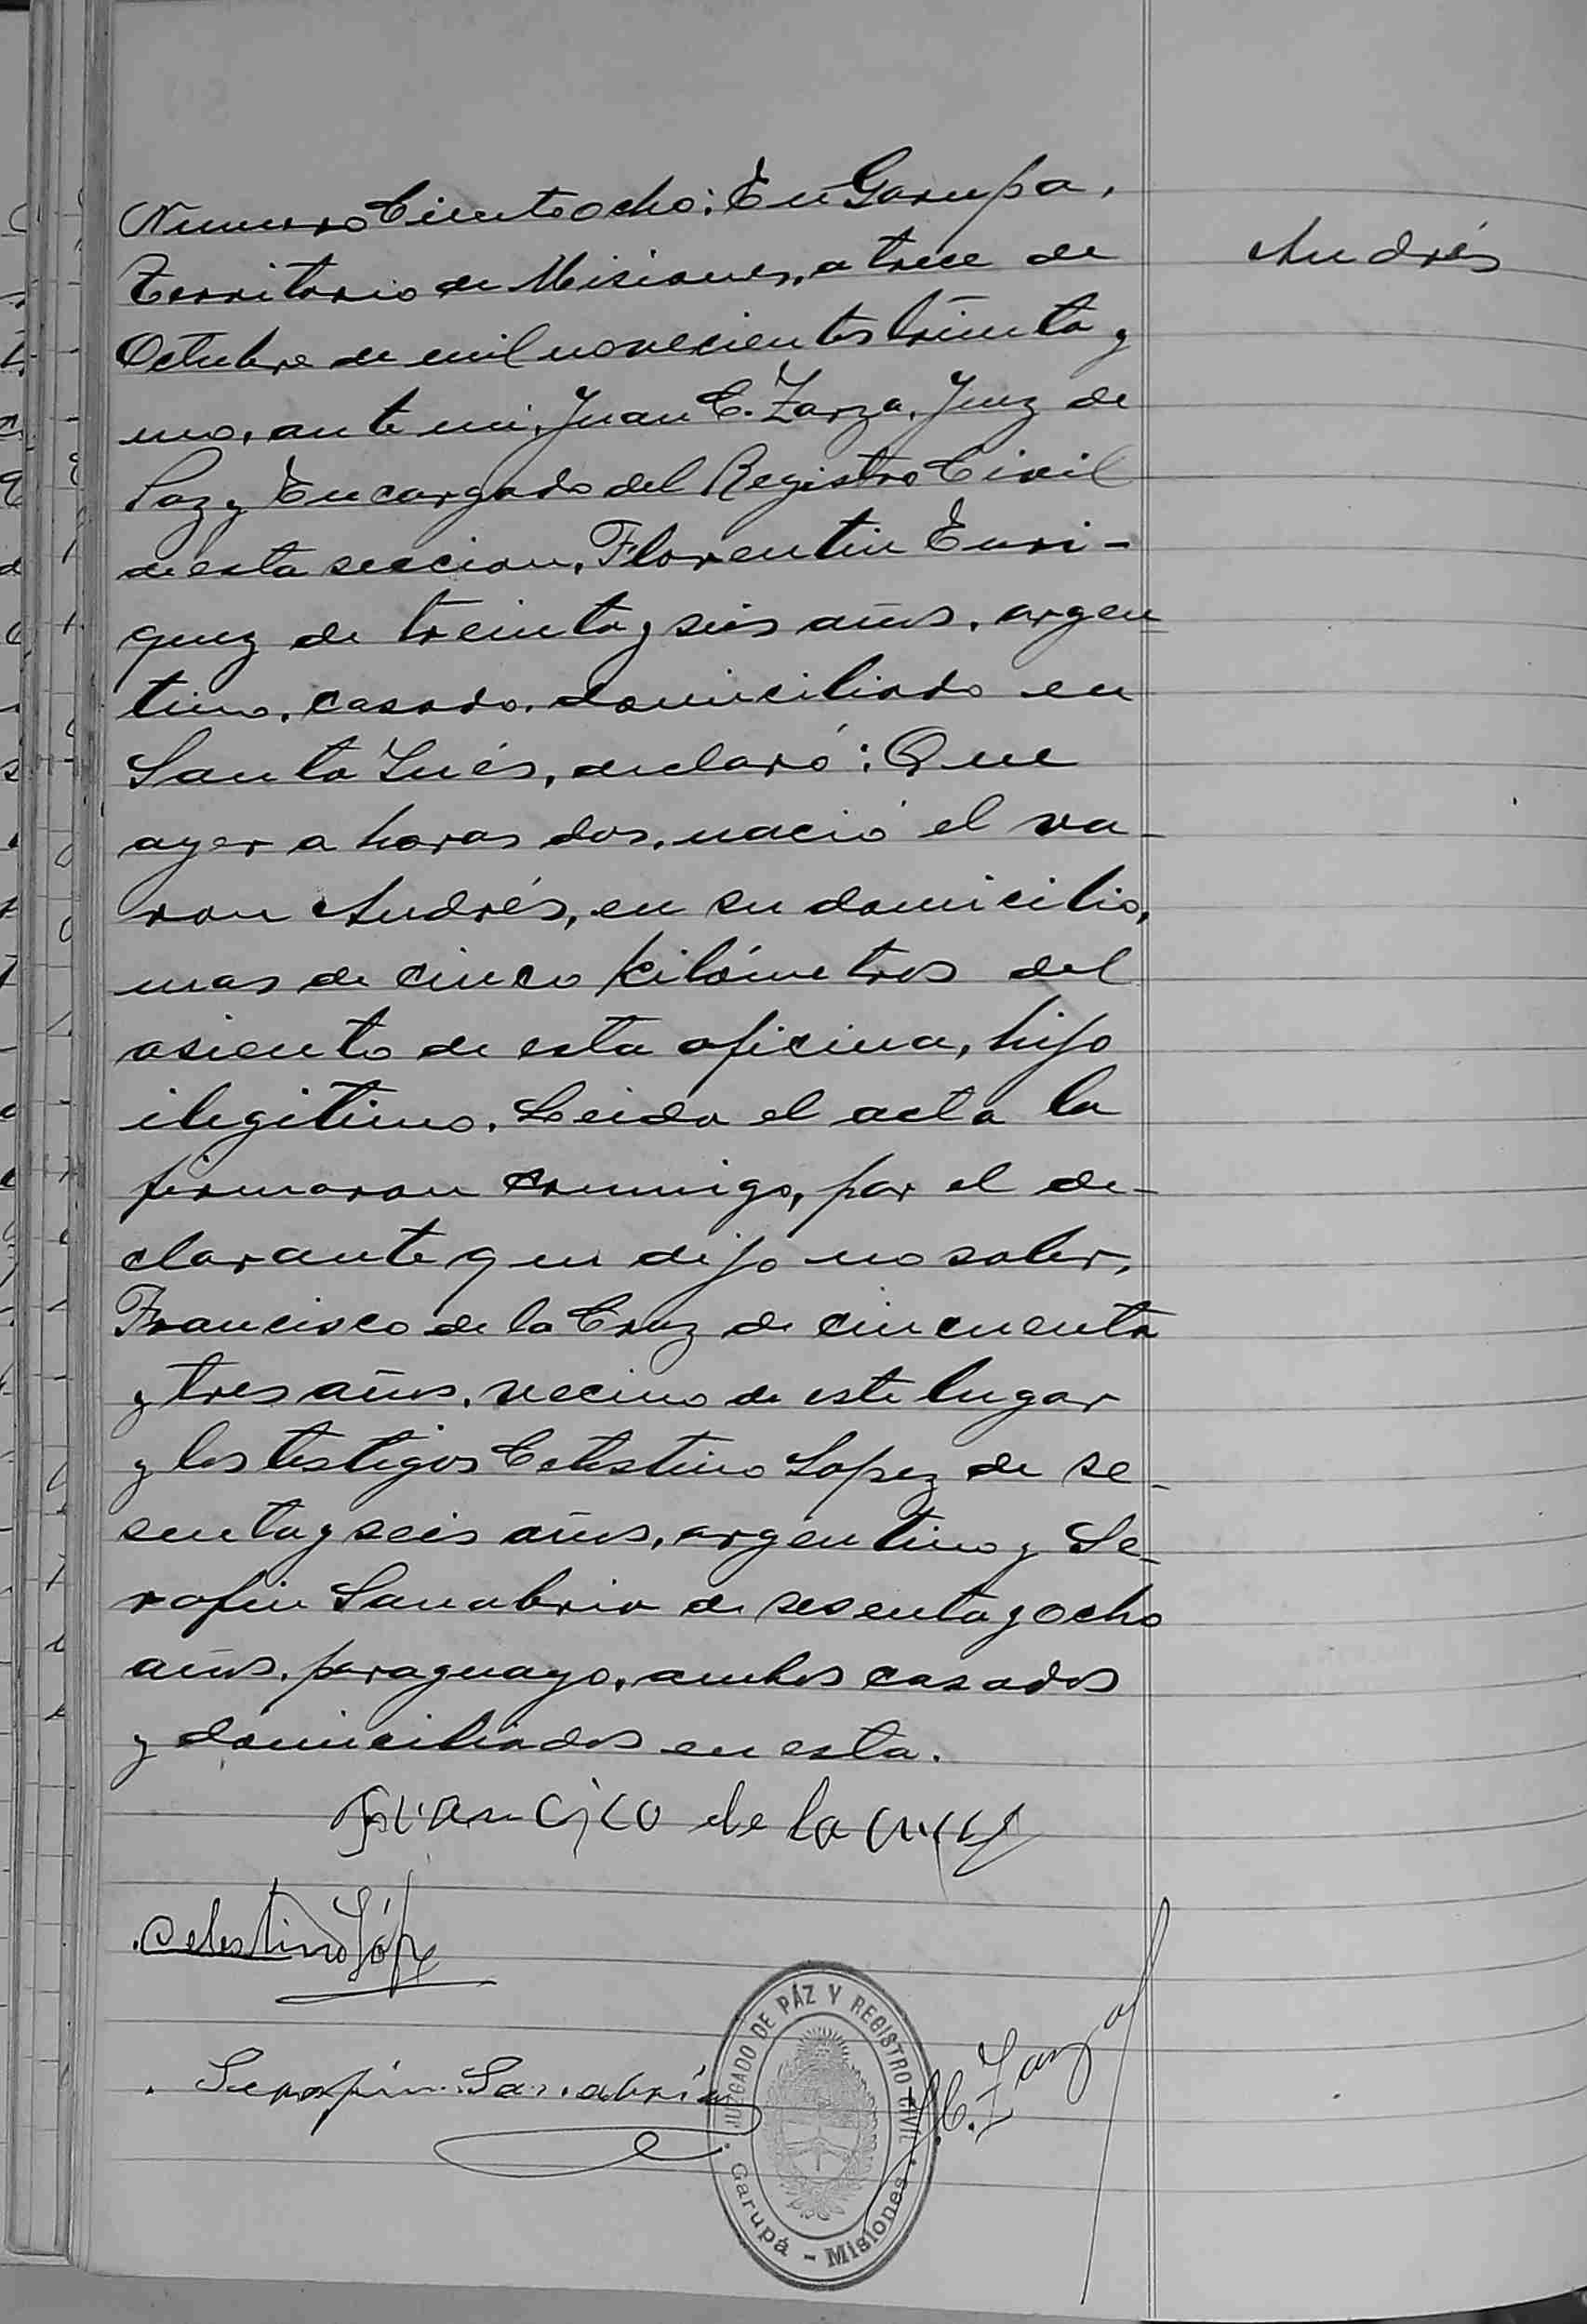 Numero Ciento ocho: En Garupa,
Territorio de Misiones, a trece de
Andrés
Octubre de mil novecientos treinta y
uno, ante mi, Juan C. Zarza, Juez de
Paz y Encargado del Registro Civil
de esta seccion, Florentin Enri-
quez de treinta y seis años, argen-
tino, casado, domiciliado en
Santa Inés, declaró: Que
ayer a horas dos, nació el va-
ron Andrés, en su domicilio,
mas de cinco kilómetros del
asiento de esta oficina, hijo
ilegitimo. Leida el acta la
firmaron conmigo, por el de-
clarante que dijo no saber,
Francisco de la Cruz de cincuenta
y tres años, vecino de este lugar
y los testigos Celestino Lopez de se-
senta y seis años, argentino y Se-
rafin Sanabria de sesenta y ocho
años, paraguayo, ambos casados
y domiciliados en esta.
Francico de la cruz
Celestino Lópe
Serafin Sanabria
J. C. Zarza
JUZGADO DE PÁZ Y REGISTRO CIVIL
Garupá - Misiones